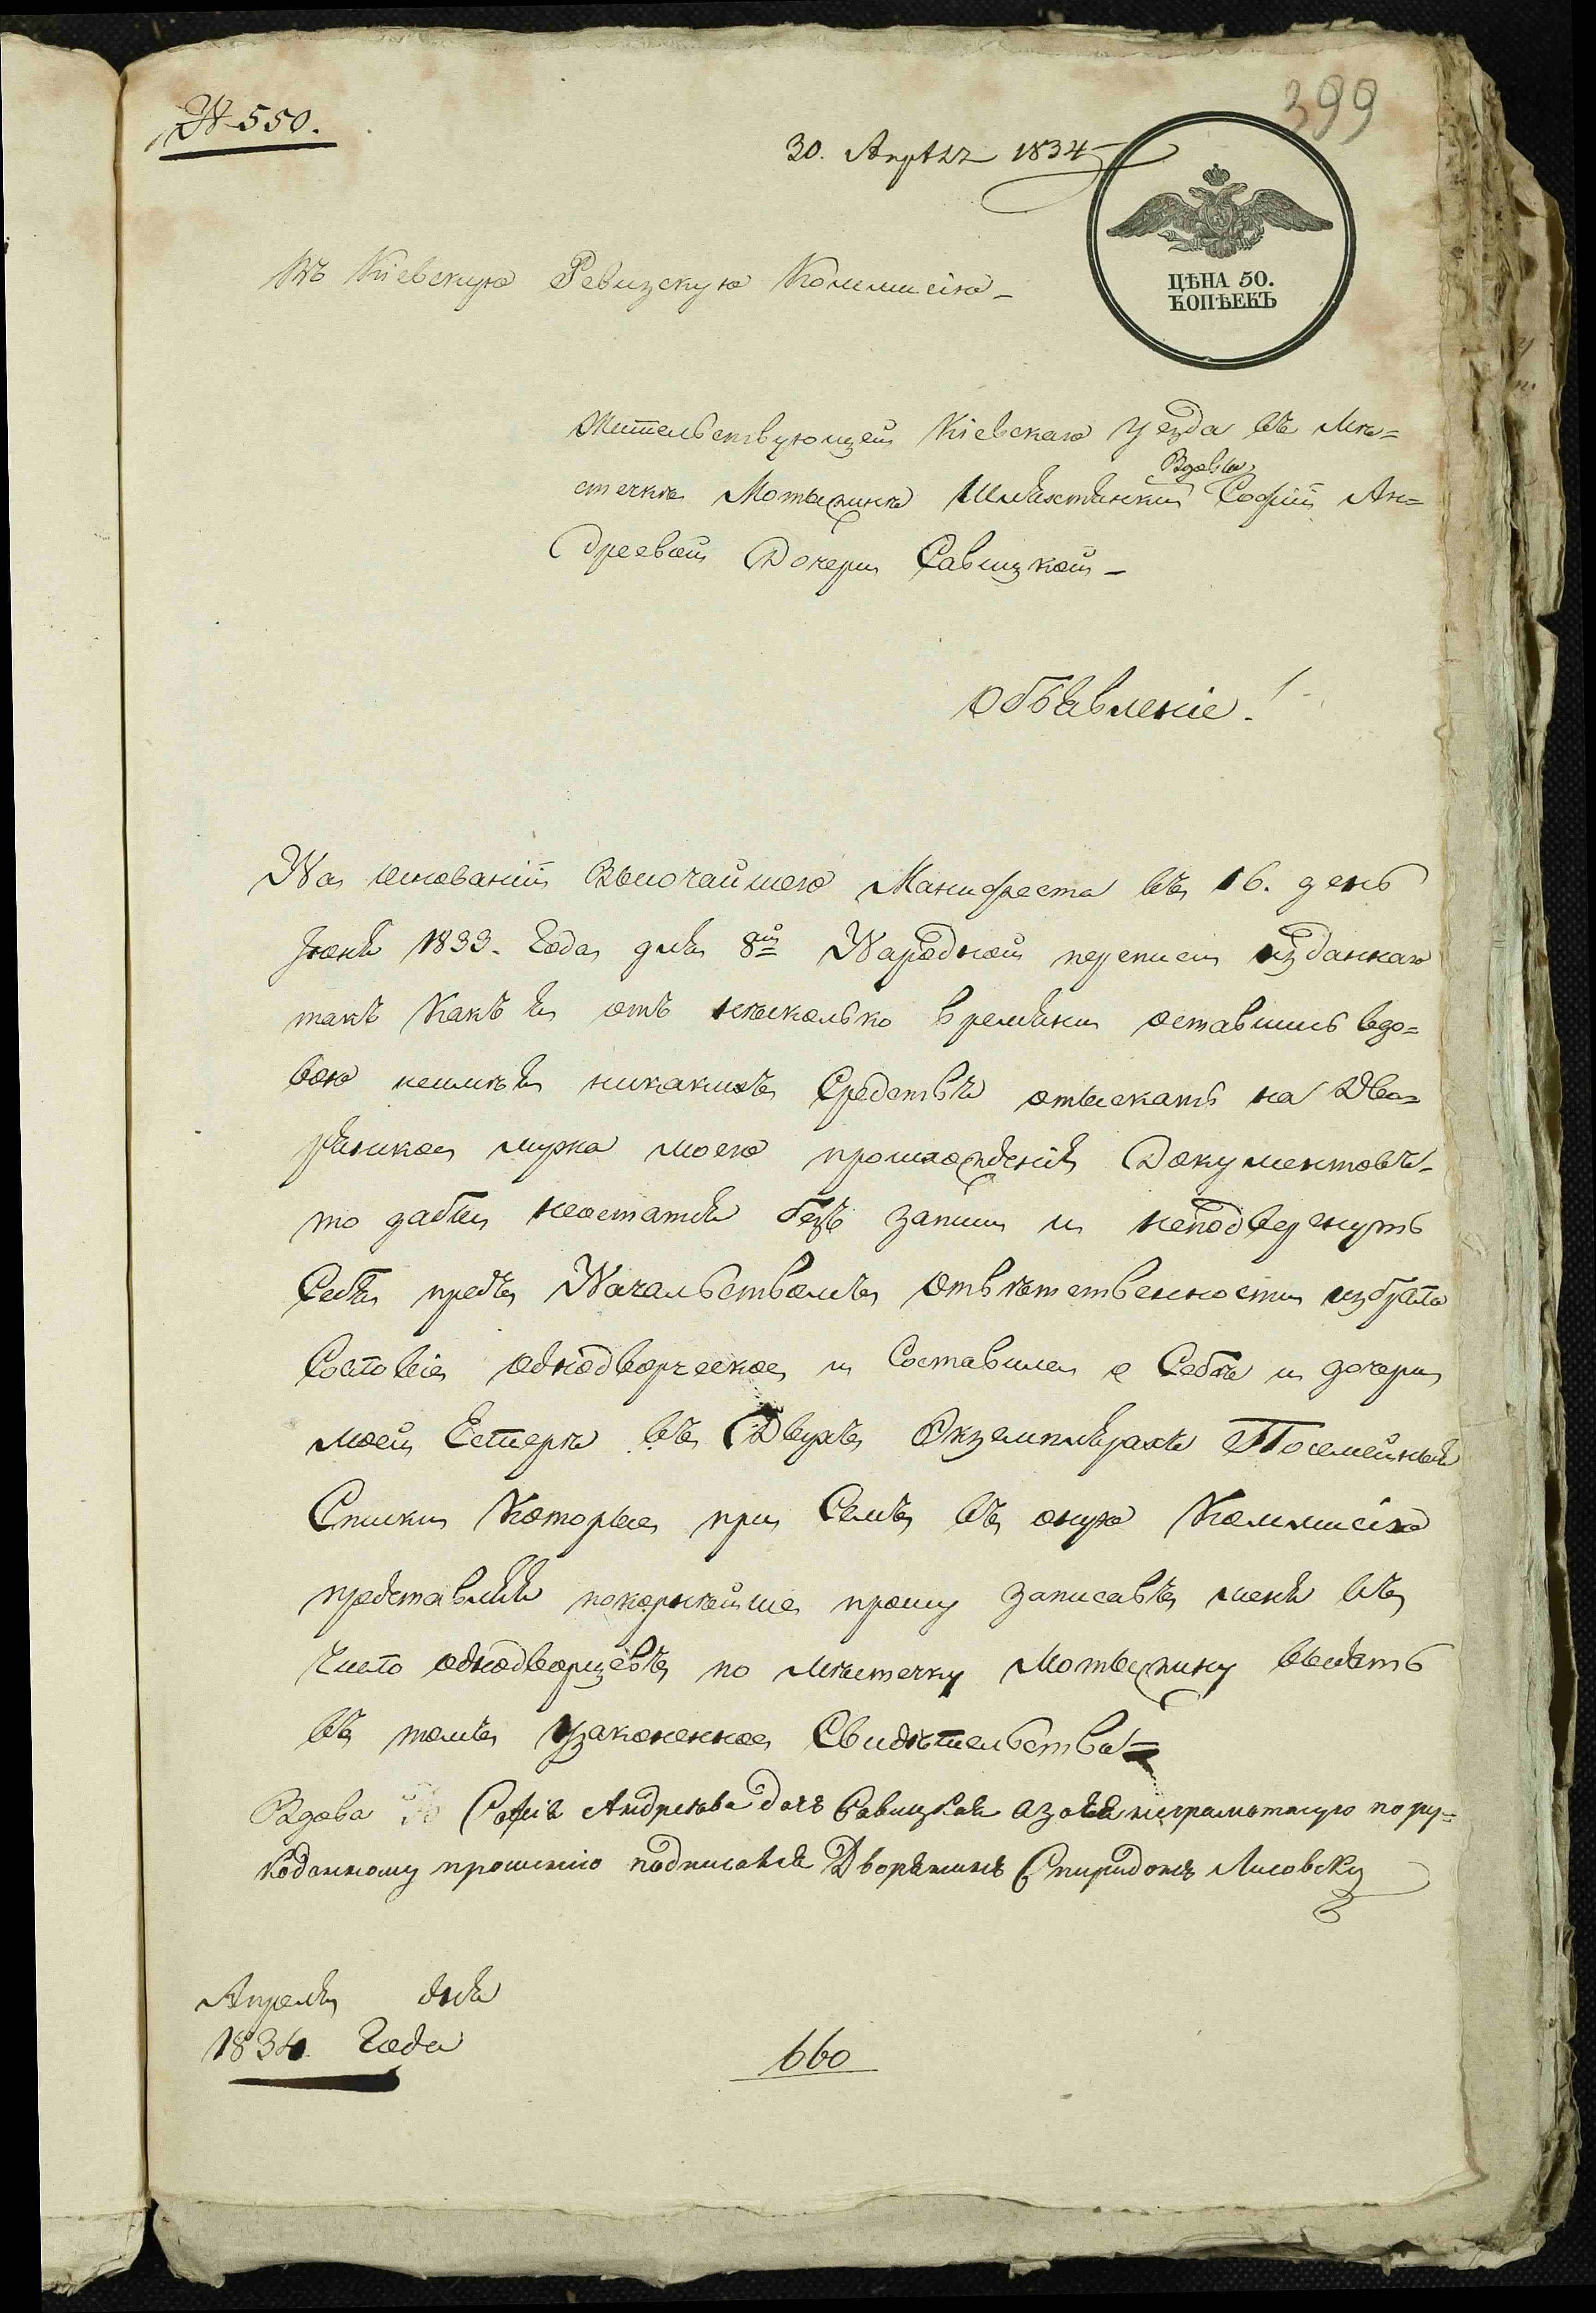 399
№ 550.
30. Апрѣля 1834
ЦѢНА 50.
КОПѢЕКЪ
Въ Кіевскую Ревизскую Коммисію
Жительствующей Кіевскаго уезда въ Мѣ=
Вдовы
стечкѣ Мотыжинѣ Шляхтянки Софіи Ан=
дреевой Дочери Савицкой
Объявленіе!
На основаніи Высочайшего Манифеста въ 16. день
Іюня 1833. Года для 8й Народной переписи изданнаго
такъ какъ я отъ нѣсколько времяни оставшись вдо=
вою неимѣя никакихъ Средствъ отыскать на Дво=
рянское мужа моего происхожденія Документовъ
то дабы неостатся безъ записи и неподвергнуть
Себя предъ Начальствомъ отвѣтственности избрала
Состовіе однодворческое и Составила о Себѣ и дочери
моей Естерѣ въ Двухъ Экземплярахъ Посемейныя
Списки Которые при Семъ въ оную Коммисію
представляя покорнѣйше прошу записавъ меня въ
число однодворцевъ по мѣстечку Мотыжину выдать
въ томъ узаконенное Свидѣтельство
Вдова Софія Андреева дочь Савицкая а за нея неграмотную по ру=
коданному прошенію подписался Дворянинъ Спиридонъ Лисовскій
Апреля дня
1834 Года
660